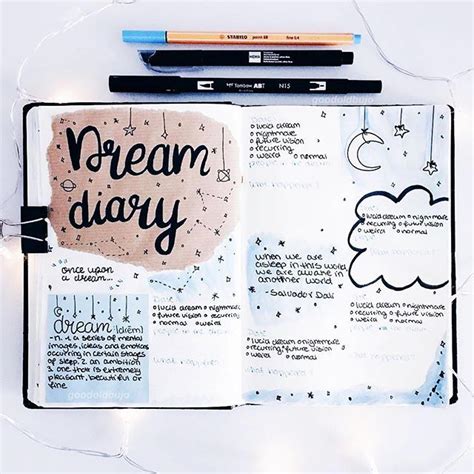 STABILO point 88 fine 0,4
Tombow ABT N15
goodoldbujo
Dream
diary
once upon
a dream...
dream [drēm]
-n. 1. a series of mental
images, ideas and emotions
occurring in certain stages
of sleep. 2. an ambition
3. one that is extremely
pleasant, beautiful or
fine.
goodoldbujo
Date:
lucid dream nightmare
recurring future vision
normal weird
what happened?
Date:
lucid dream
nightmare
future vision
recurring
weird normal
what happened?
when we are
asleep in this world
we are awake in
another world
-Salvador Dalí
lucid dream nightmare
recurring future vision
weird normal
what happened?
lucid dream nightmare
recurring future vision
weird normal
lucid dream nightmare
recurring future vision
normal weird
what happened?